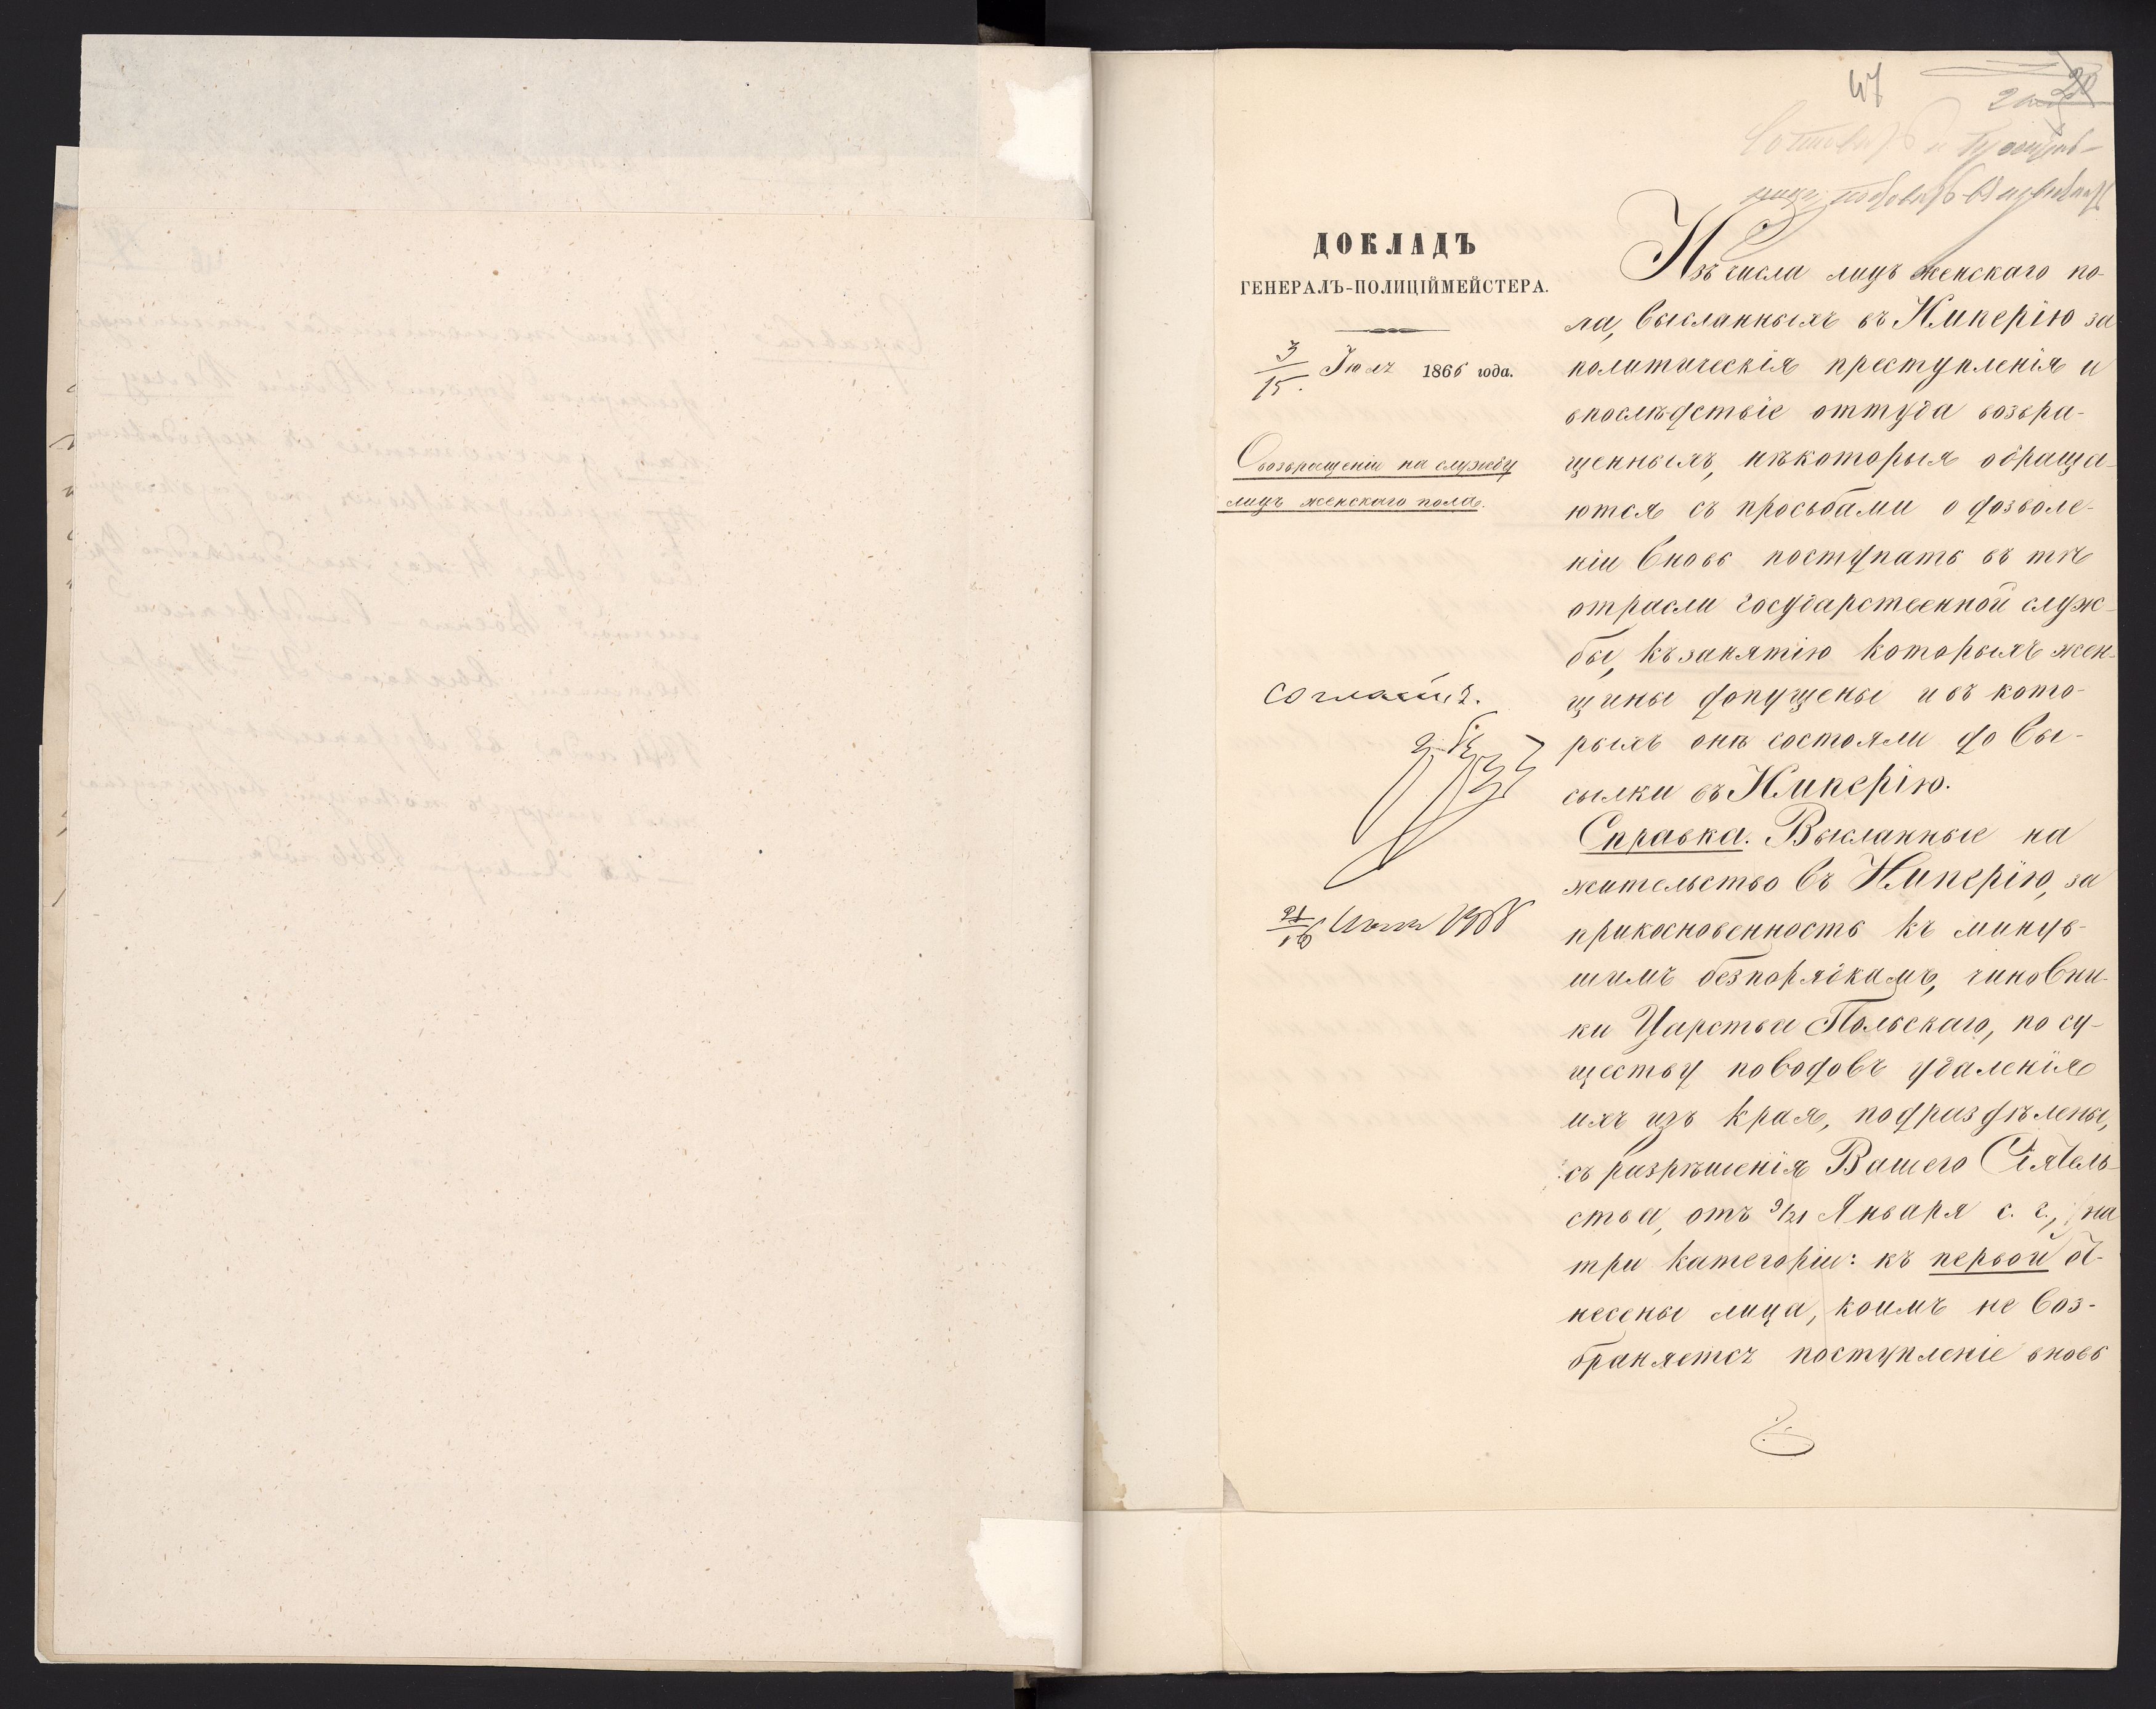 47
20
ДОКЛАДЪ
ГЕНЕРАЛЪ-ПОЛИЦІЙМЕЙСТЕРА.
3/15 Іюля 1866 года.
О возвращеніи на службу
лицъ женскаго пола.
Согласенъ.
Изъ числа лицъ женскаго по-
ла, высланныхъ въ Имперію за
политическія преступленія и
впослѣдствіе оттуда возвра-
щенныхъ, нѣкоторыя обраща-
ются съ просьбами о дозволе-
ніи вновь поступать въ тѣ
отрасли государственной служ-
бы, къ занятію которыхъ жен-
щины допущены и въ кото-
рыхъ онѣ состояли до вы-
сылки въ Имперію.
Справка. Высланные на
жительство въ Имперію, за
прикосновенность къ минув-
шимъ безпорядкамъ, чиновни-
ки Царства Польскаго, по су-
ществу поводовъ удаленія
ихъ изъ края, подраздѣлены,
съ разрѣшенія Вашего Сіятель-
ства, отъ 9/21 Января с. г., на
три категоріи: къ первой от-
несены лица, коимъ не воз-
браняется поступленіе вновь